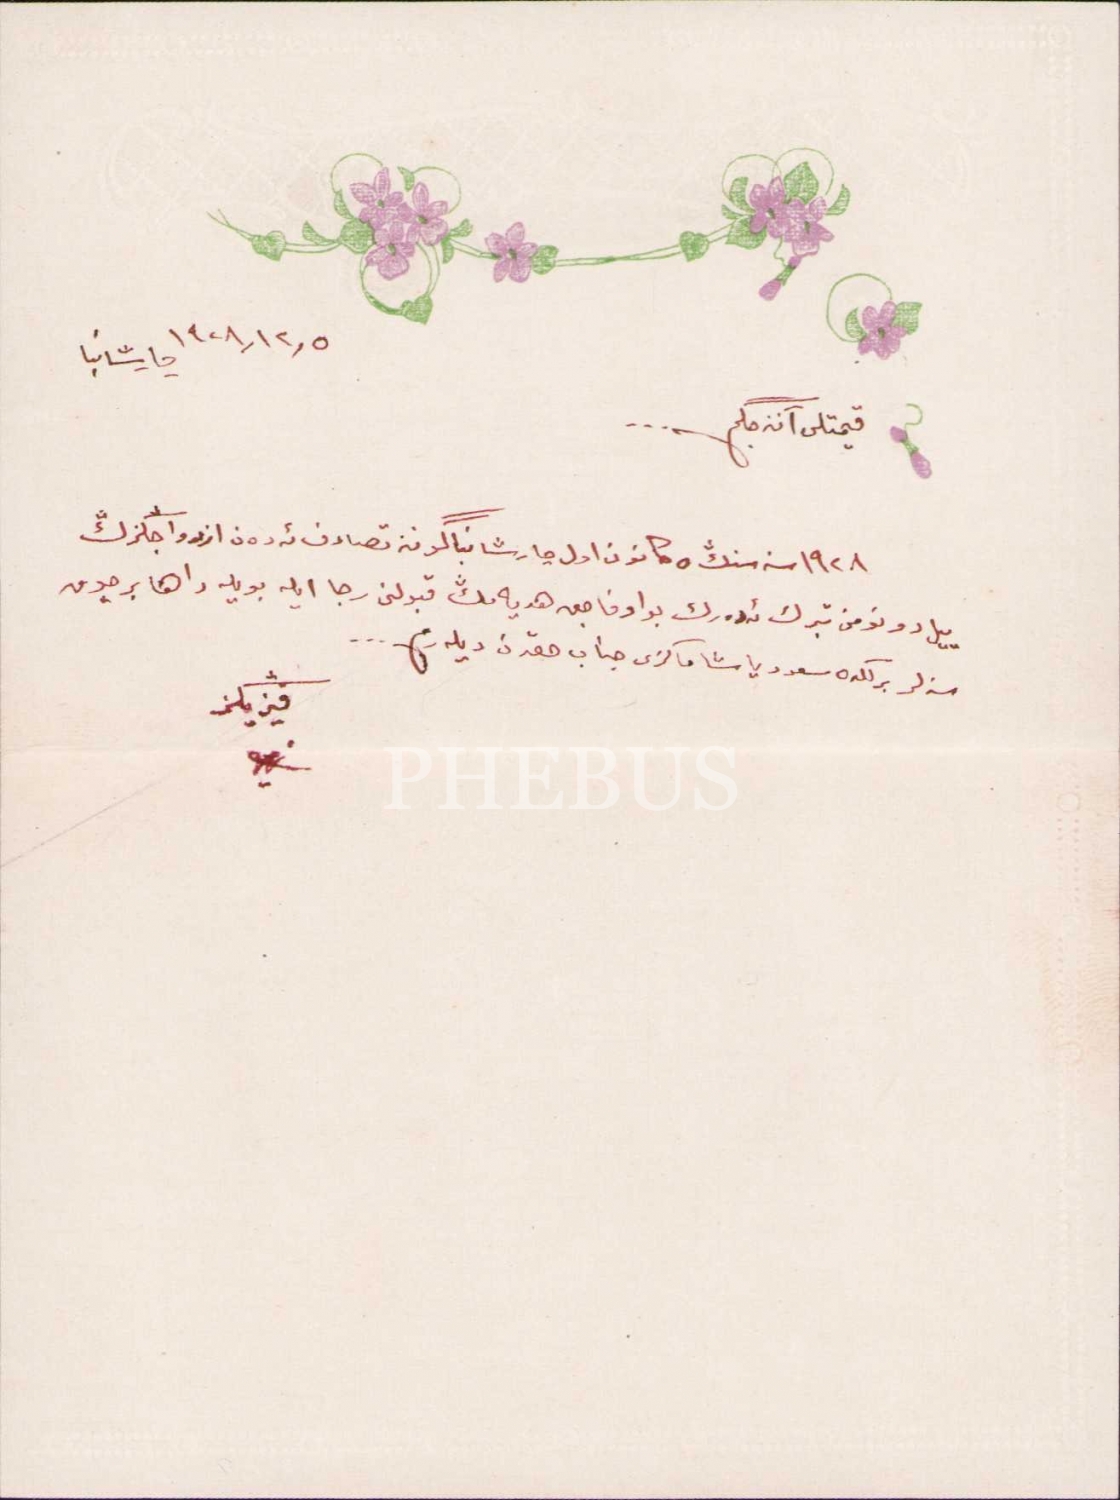 ١٩٢٨٫١٢٫٥ چارشانبا
قیمتلی آننه جكم ...
١٩٢٨ سنه سنڭ ٥ كانون اول چارشانبا گونه تصادف ئه ده ن ازدواجكزڭ
ییل دونومنی تبرك ئه ده رك بو اوفاجق هدیه مڭ قبولنی رجا ایله بویله داها بر چوق
سنه لر برلكده مسعود یاشاماكزی جناب حقدن دیله رم ...
قیزیكز
PHEBUS